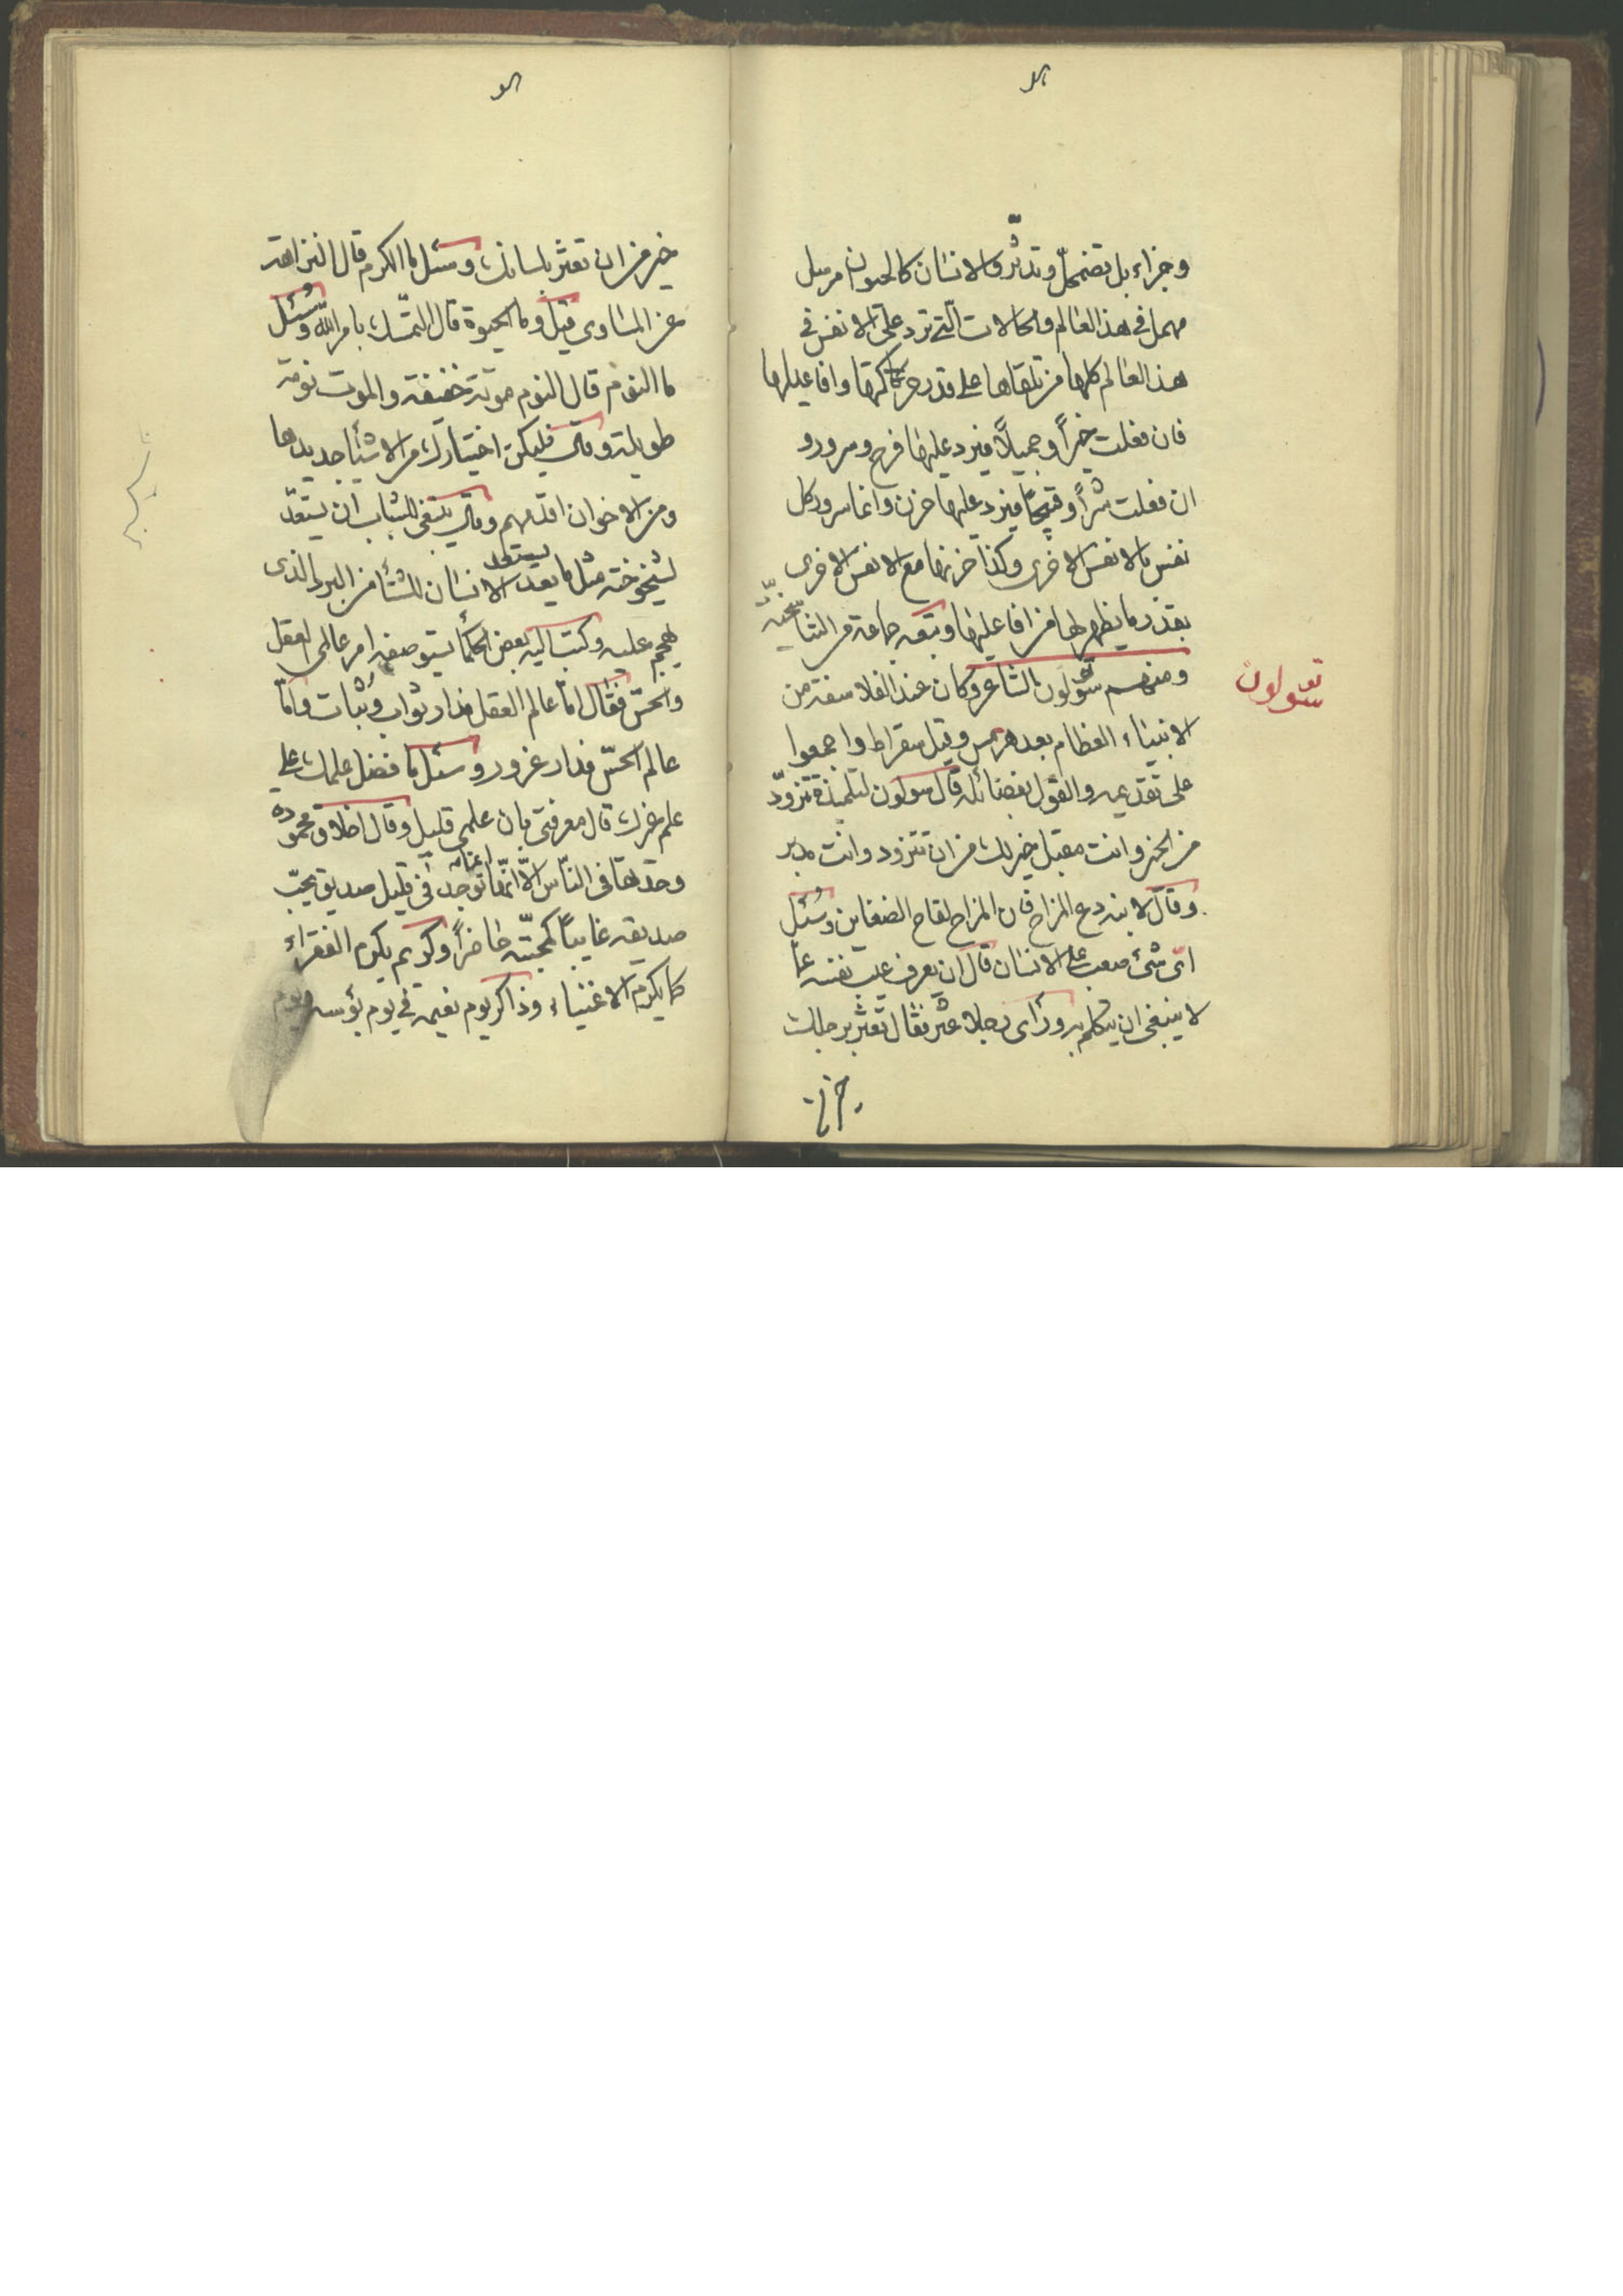 وجزاء بل تضمحلّ وتدثّر والانسان كالحيوان مرسل
مهمل في هذا العالم والحالات الّتي ترد على الانفس في
هذا العالم كلها من تلقاها على قدر حركاتها وافاعيلها
فان فعلت خيراً وجميلاً فيرد عليها فرح وسرور و
ان فعلت شراً وقبيحاً فيرد عليها حزن وانما سرور كل
نفس بالانفس الاخرى وكذا حزنها مع الانفس الاخرى
بقدر ما يظهر لها من افاعيلها وتبعه جماعة من التناسخيّة
سولون
ومنهم سولون الشاعر وكان عند الفلاسفة من
الانبياء العظام بعد هرمس وقبل سقراط واجمعوا
على تقديمه والقول بفضائله قال سولون لتلميذه تزوّد
من الخير وانت مقبل خير لك من ان تتزود وانت مدبر
وقال لابنه دع المزاح فان المزاح لقاح الضغاين وسُئل
ايّ شئ صعب على الانسان قال ان يعرف عيب نفسه عمّا
لا ينبغي ان يتكلم به ورأى رجلا عثر فقال تعثر برجلك
خير من ان تعثر بلسانك وسئل ما الكرم قال النزاهة
عن المساوى قيل وما الحيوة قال التمسّك بامر الله وسُئل
ما النوم قال النوم موتة خفيفة والموت نومة
طويلة وقال فليكن اختيارك من الاشيآ جديدها
ومن الاخوان اقدمهم وقال ينبغي للشباب ان يستعدّ
لشيخوخته مثل ما يعدّ الانسان للشتآ من البرد الذى
يستعد
يهجم عليه وكتب اليه بعض الحكمآ يستوصفه امر عالمى العقل
والحسّ فقال امّا عالم العقل فدار ثواب وثبات وامّا
عالم الحسّ فدار غرور وسئل ما فضل علمك على
علم غيرك قال معرفتى بان علمى قليل وقال اخلاق محموده
وجدتها فى النّاس الّا انّها توجد فى قليل صديق يحبّ
صديقه غايباً كمحبّته حاضراً وكريم يكرم الفقراء
كما يكرم الاغنياء وذاكر يوم نعيمه في يوم بؤسه ويوم